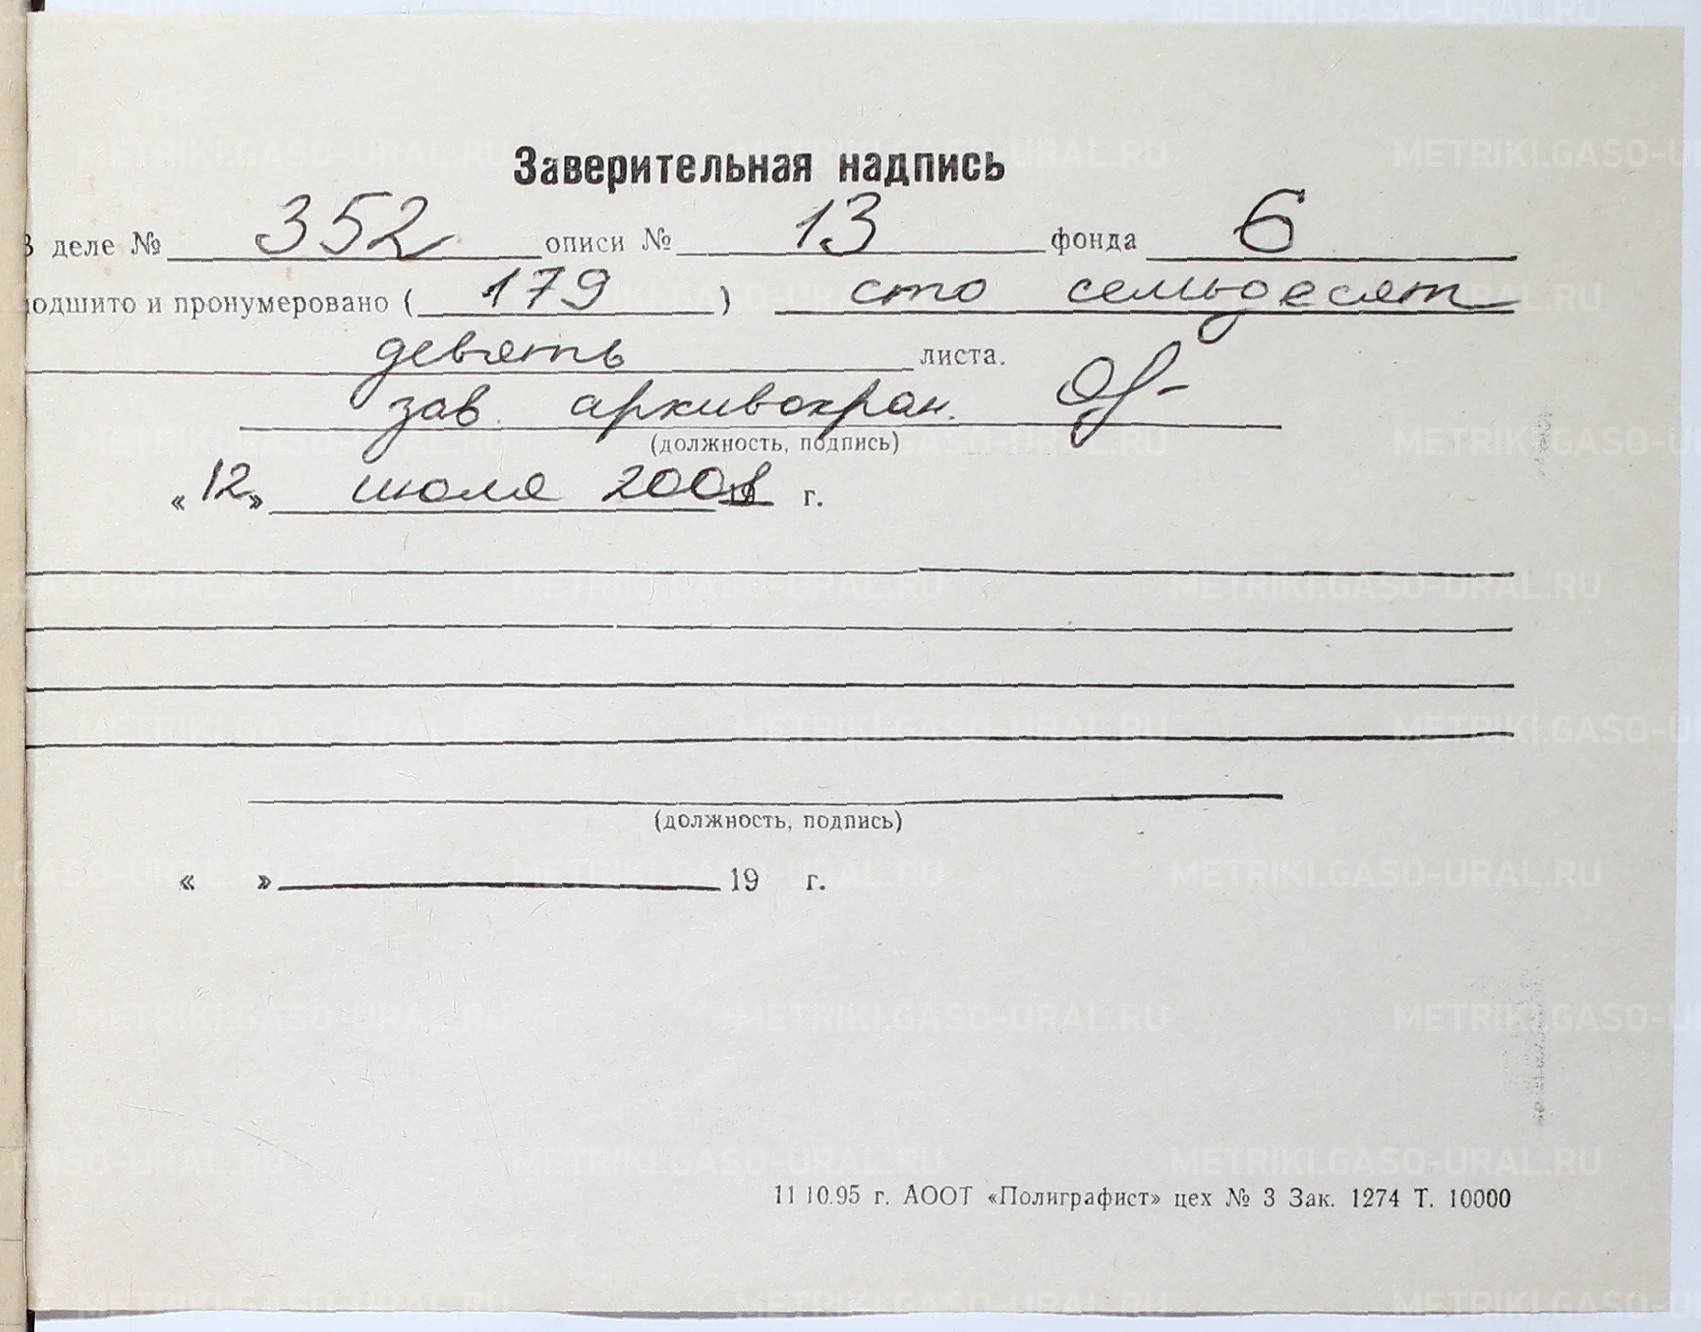 Заверительная надпись
В деле № 352 описи № 13 фонда 6
подшито и пронумеровано ( 179 ) сто семьдесят
девять листа.
зав. архивохран.
(должность, подпись)
«12» июля 2008 г.
(должность, подпись)
« » 19 г.
11 10.95 г. АООТ «Полиграфист» цех № 3 Зак. 1274 Т. 10000
METRIKI.GASO-URAL.RU